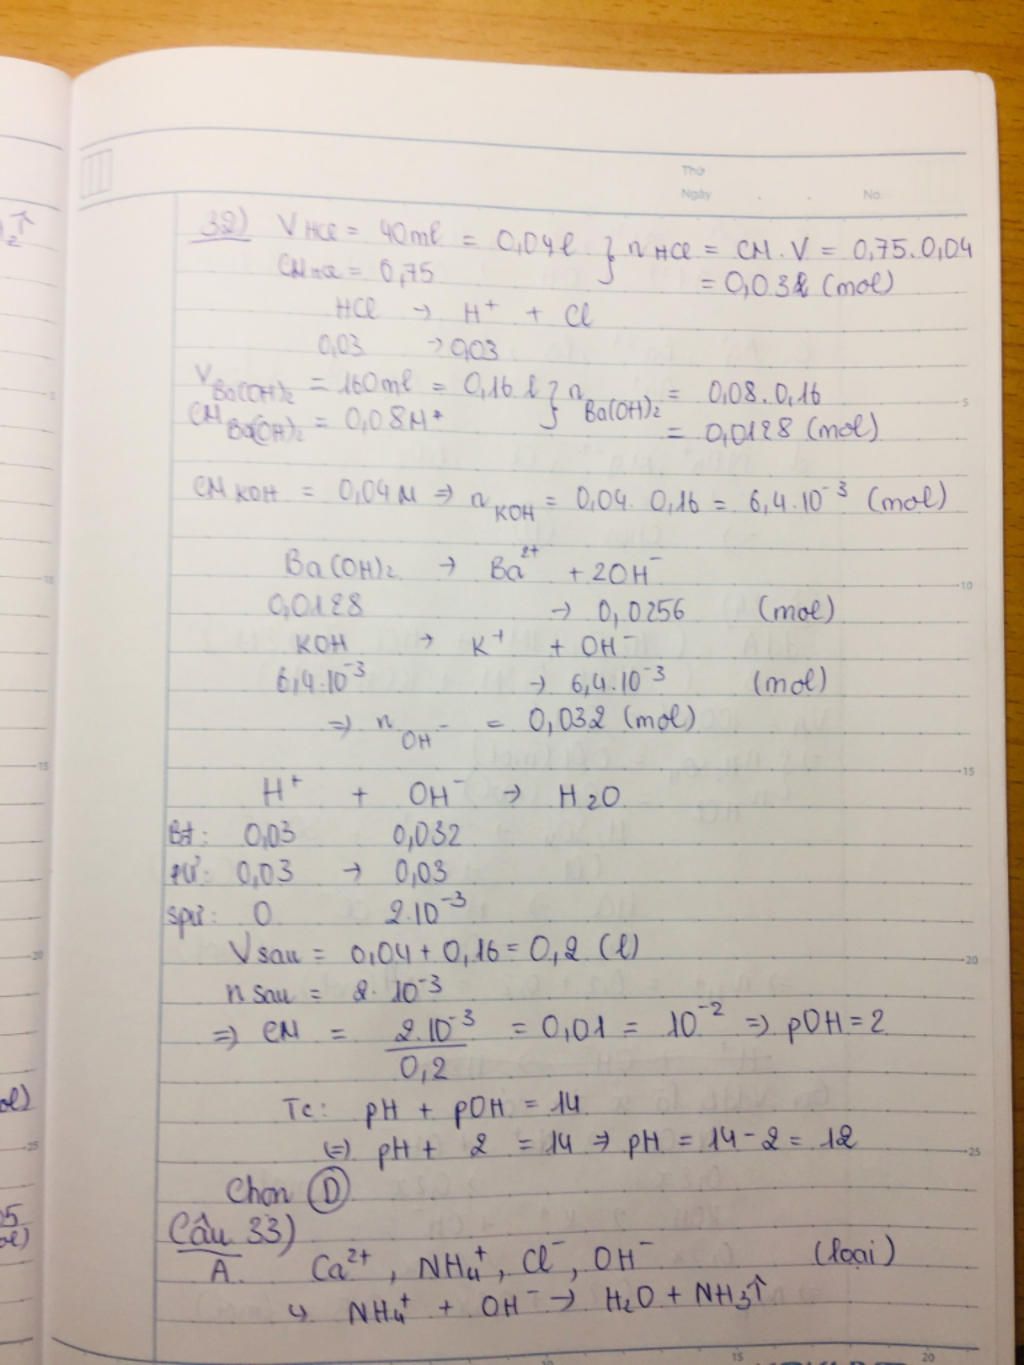 Thứ
Ngày . . No.
32) V HCl = 40ml = 0,04l } n HCl = CM.V = 0,75.0,04
CM HCl = 0,75 = 0,03 (mol)
HCl → H⁺ + Cl
0,03 → 0,03
V Ba(OH)₂ = 160ml = 0,16 l } n Ba(OH)₂ = 0,08.0,16
CM Ba(OH)₂ = 0,08M = 0,0128 (mol)
CM KOH = 0,04M ⇒ n KOH = 0,04. 0,16 = 6,4.10⁻³ (mol)
Ba(OH)₂ → Ba²⁺ + 2OH⁻
0,0128 → 0,0256 (mol)
KOH → K⁺ + OH⁻
6,4.10⁻³ → 6,4.10⁻³ (mol)
⇒ n OH⁻ = 0,032 (mol)
H⁺ + OH⁻ → H₂O
Bđ: 0,03 0,032
pư: 0,03 → 0,03
spư: 0 2.10⁻³
V sau = 0,04 + 0,16 = 0,2 (l)
n sau = 2.10⁻³
⇒ CM = 2.10⁻³ / 0,2 = 0,01 = 10⁻² ⇒ pOH = 2
Tc: pH + pOH = 14
(=) pH + 2 = 14 ⇒ pH = 14 - 2 = 12
Chọn D
Câu 33)
A. Ca²⁺, NH₄⁺, Cl⁻, OH⁻ (loại)
↳ NH₄⁺ + OH⁻ → H₂O + NH₃↑